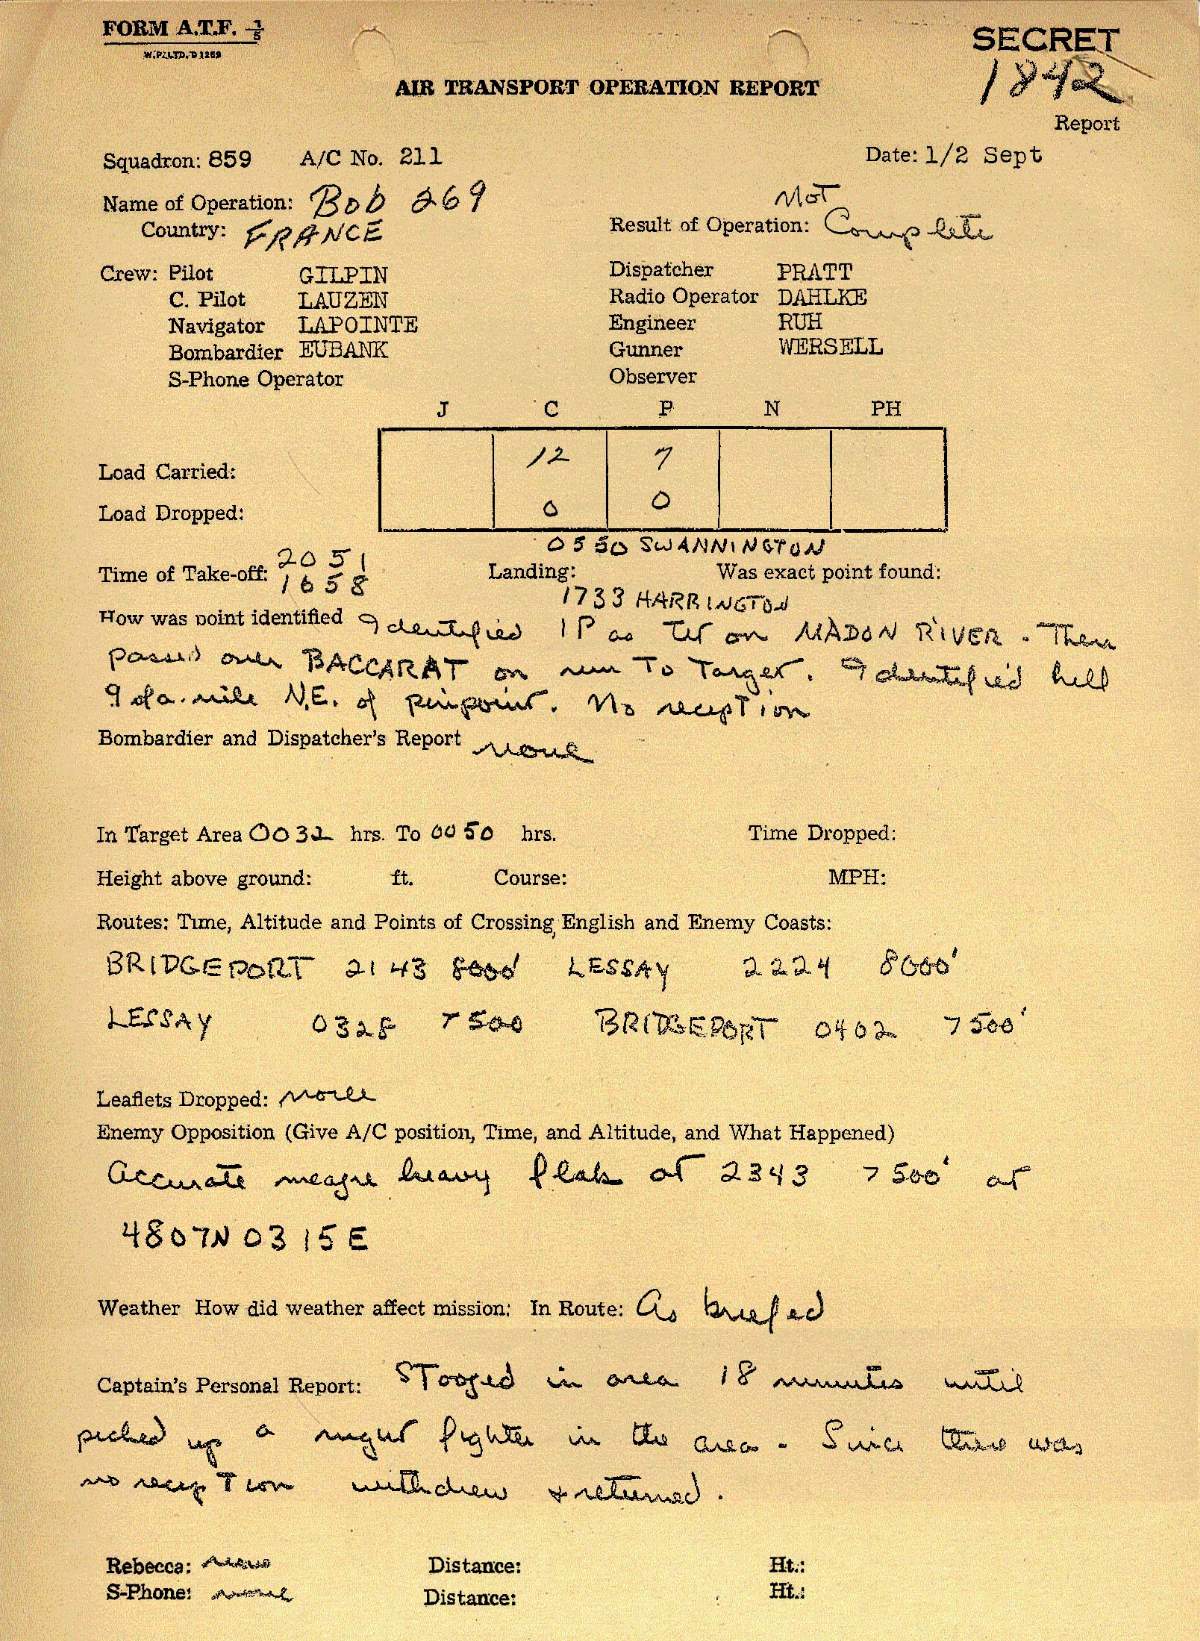 FORM A.T.F. 1/5
SECRET
W.P. LTD. D1259
1842
AIR TRANSPORT OPERATION REPORT
Report
Squadron: 859 A/C No. 211 Date: 1/2 Sept
Name of Operation: Bob 269 Not
Country: FRANCE Result of Operation: Complete
Crew: Pilot GILPIN Dispatcher PRATT
C. Pilot LAUZEN Radio Operator DAHLKE
Navigator LAPOINTE Engineer RUH
Bombardier EUBANK Gunner WERSELL
S-Phone Operator Observer
J C P N PH
Load Carried: 12 7
Load Dropped: 0 0
2051 0550 SWANNINGTON
Time of Take-off: 1658 Landing: Was exact point found:
1733 HARRINGTON
How was point identified Identified IP as TW on MADON RIVER. Then
passed over BACCARAT on run To Target. Identified hill
9 of a mile N.E. of pinpoint. No reception
Bombardier and Dispatcher's Report none
In Target Area 0032 hrs. To 0050 hrs. Time Dropped:
Height above ground: ft. Course: MPH:
Routes: Time, Altitude and Points of Crossing English and Enemy Coasts:
BRIDGEPORT 2143 8000' LESSAY 2224 8000'
LESSAY 0328 7500 BRIDGEPORT 0402 7500'
Leaflets Dropped: none
Enemy Opposition (Give A/C position, Time, and Altitude, and What Happened)
Accurate meagre heavy flak at 2343 7500' at
4807N 0315E
Weather How did weather affect mission: In Route: As briefed
Captain's Personal Report: STooged in area 18 minutes until
picked up a night fighter in the area. Since there was
no reception withdrew & returned.
Rebecca: none Distance: Ht.:
S-Phone: none Distance: Ht.: